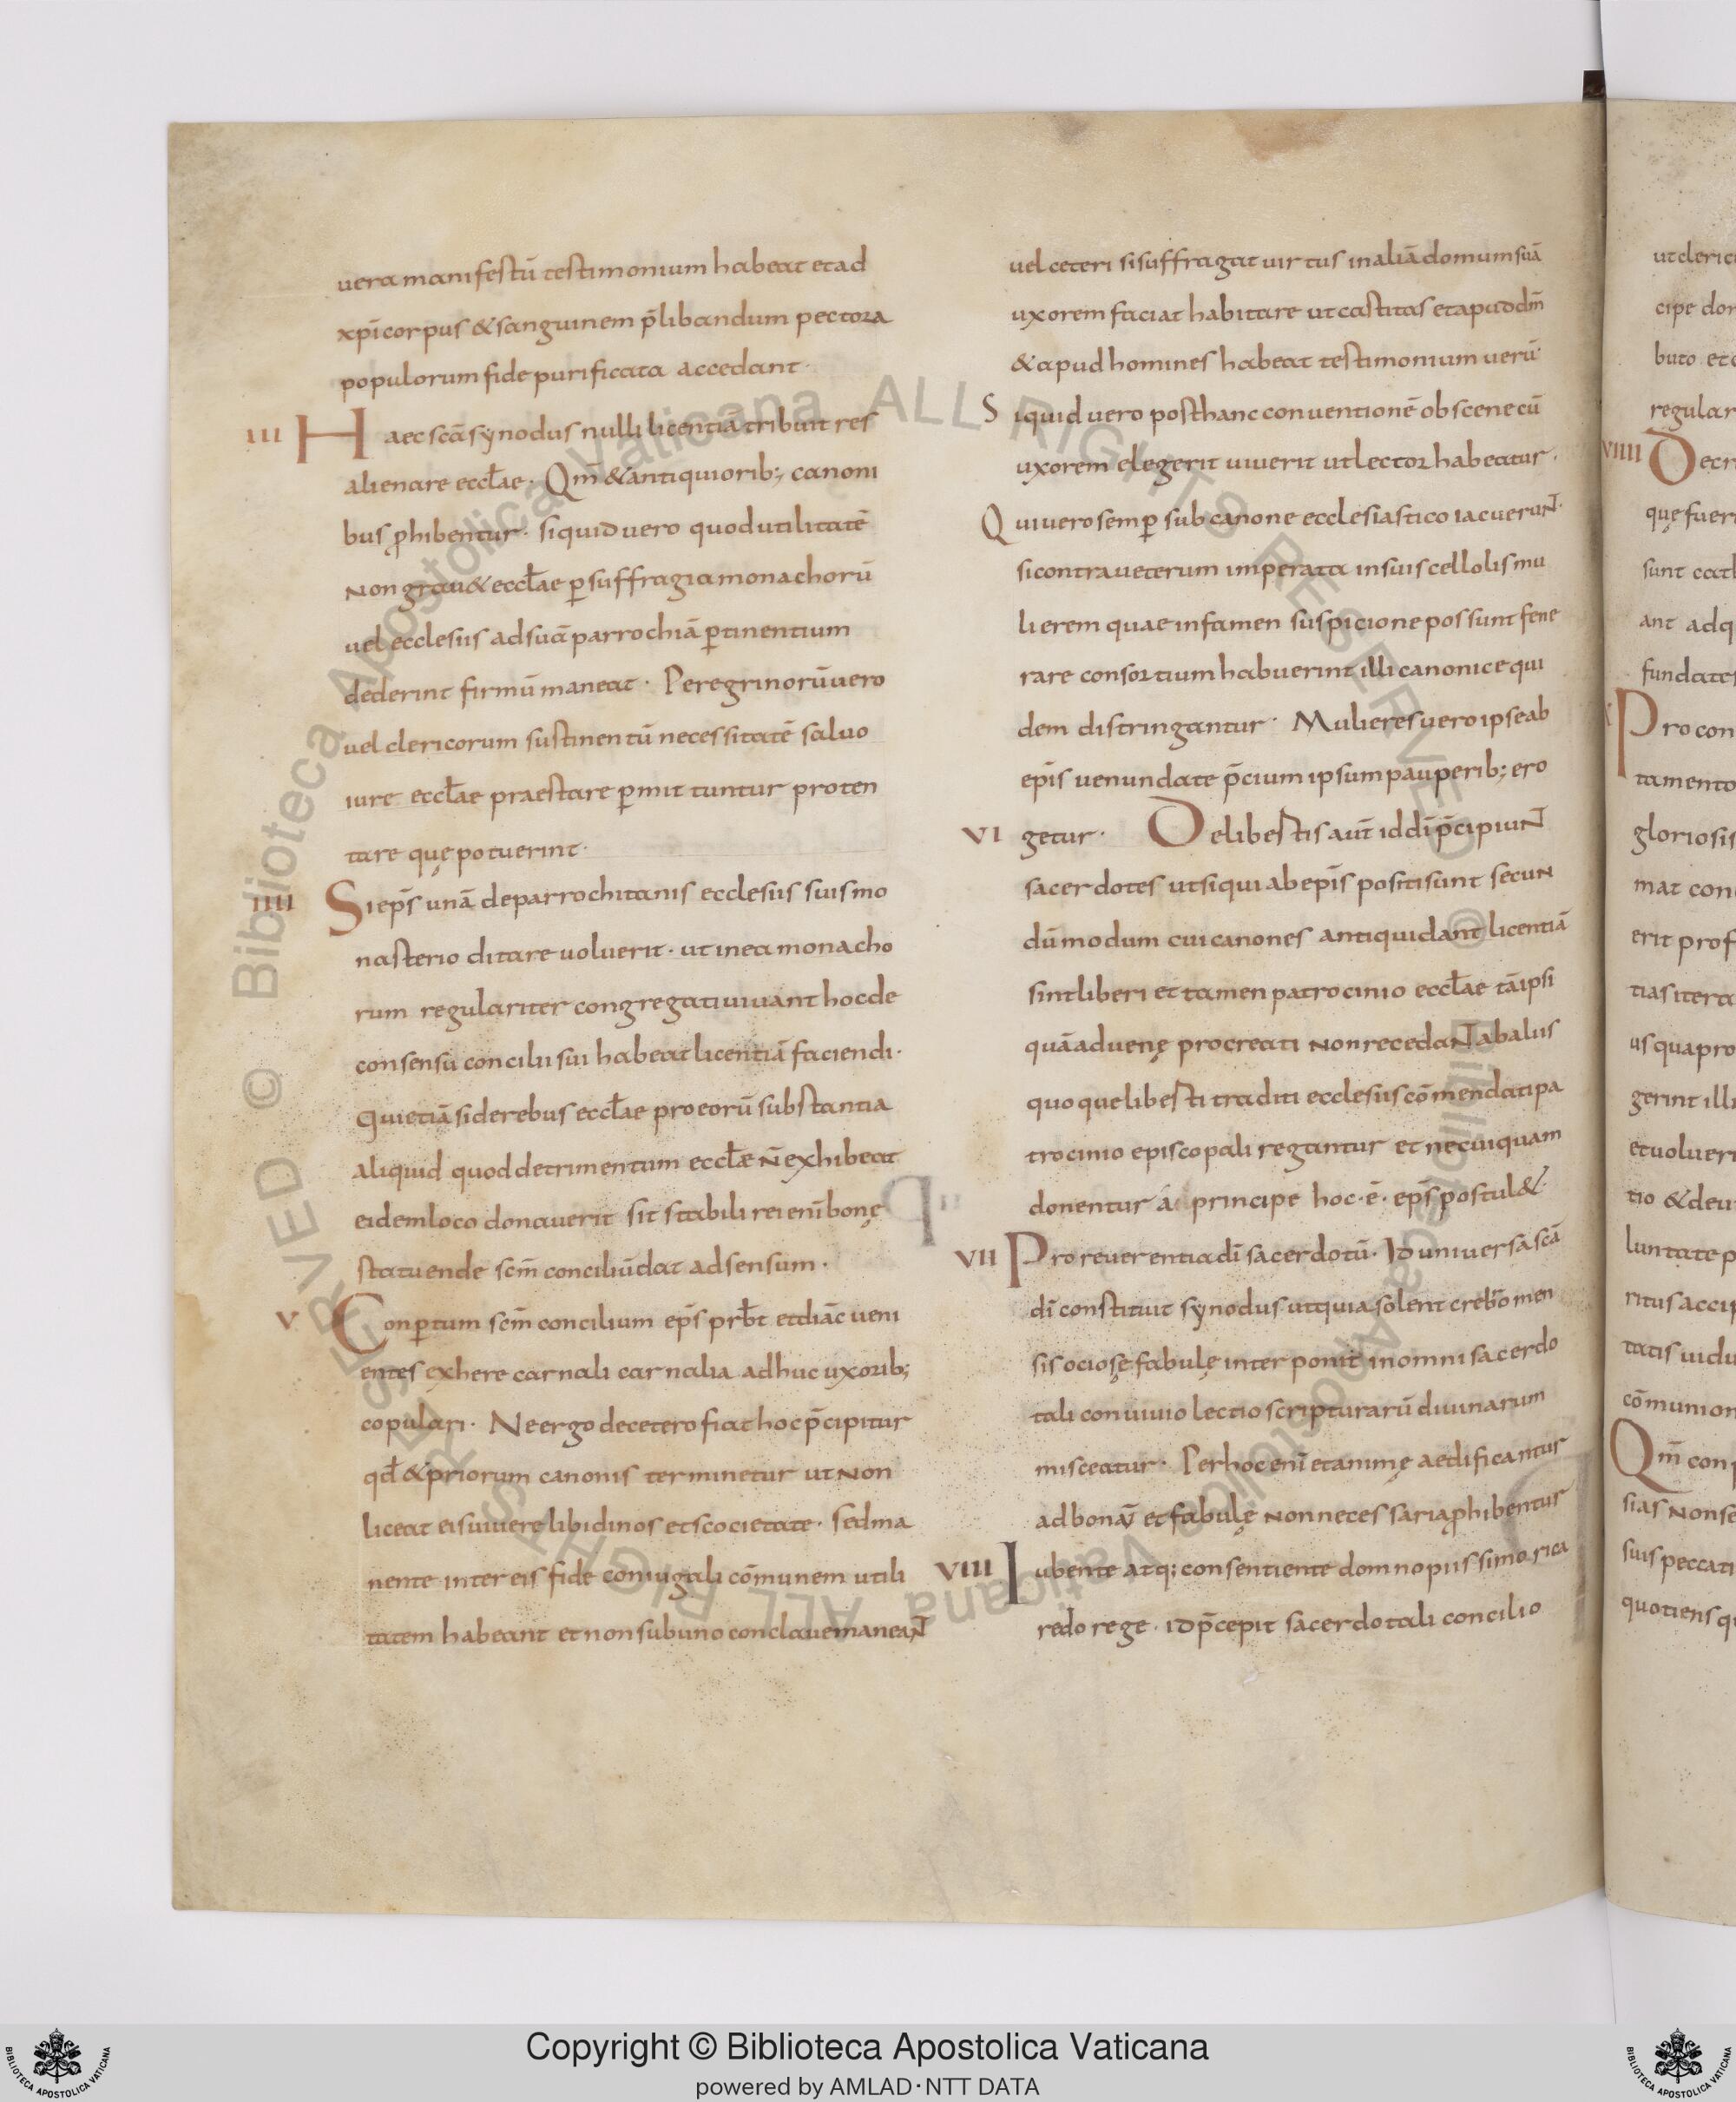 uera manifestū testimonium habeat et ad
xp̄i corpus & sanguinem p̄libandum pectora
populorum fide purificata accedant·
III Haec scā synodus nulli licentiā tribuit res
alienare eccƚae· Qm̄ & antiquiorib; canoni
bus ꝓhibentur· siquid uero quod utilitatē
non grau& eccƚae ꝑ suffragia monachorū
uel ecclesiis ad suā parrochiā ꝑtinentium
dederint firmū maneat· Peregrinorū uero
uel clericorum sustinentū necessitatē saluo
iure eccƚae praestare ꝑmittuntur pro ten
tare quę potuerint·
IIII Si ep̄s unā de parrochitanis ecclesiis suis mo
nasterio ditare uoluerit· ut in ea monacho
rum regulariter congregati uiuant hoc de
consensu concilii sui habeat licentiā faciendi·
Qui etiā si de rebus eccƚae pro eorū substantia
aliquid quod detrimentum eccƚæ n̄ exhibeat
eidem loco donauerit sit stabili rei enī bonę
statuende scm̄ conciliū dat adsensum·
V Conꝑtum scm̄ concilium ep̄s prƀt et diāc ueni
entes exhere carnali carnalia adhuc uxorib;
copulari· Ne ergo de cetero fiat hoc p̄cipitur
qđ & priorum canonis terminetur ut non
liceat eis uiuere libidinos et scocietate· sed ma
nente inter eis fide coniugali cōmunem utili
tatem habeant et non sub uno conclaue maneant
uel ceteri si suffragat uirtus in aliā domum suā
uxorem faciat habitare ut castitas et apud dm̄
& apud homines habeat testimonium uerū·
Siquid uero post hanc conuentionē obscene cū
uxorem elegerit uiuerit ut lector habeatur·
Qui uero semꝑ sub canone ecclesiastico iacuerunt·
si contra ueterum imperata in suis cellolis mu
lierem quae infamen suspicione possunt fene
rare consortium habuerint illi canonice qui
dem distringantur· Mulieres uero ipse ab
ep̄is uenundate p̄cium ipsum pauperib; ero
VI getur· De libestis aut̄ id dī p̄cipiunt
sacerdotes ut siqui ab ep̄is positi sunt secun
dū modum cui canones antiqui dant licentiā
sint liberi et tamen patrocinio eccƚae tā ipsi
quā ad uenę procreati non recedant ab aliis
quoque libesti traditi ecclesiis cōmendati pa
trocinio episcopali regantur et ne cuiquam
donentur a principe hoc·ē· ep̄s postul&·
VII Pro reuerentia dī sacerdotū· Id uniuersa scā
dī constituit synodus ut quia solent crebro men
sis ociosę fabulę inter ponit in omni sacerdo
tali conuiuio lectio scripturarū diuinarum
misceatur· Per hoc enī et animę aedificantur
ad bonā et fabulę non necessaria ꝓhibentur
VIII Iubente atq; consentiente domno piissimo rica
redo rege· id p̄cepit sacerdotali concilio
ut cleric
cipe don
buto et c
regular
VIIII Decr
quę fuer
sunt cat
ant adq
fundates
X Pro con
tamento
gloriosis
mat con
erit prof
tias itera
us qua pro
gerint illi
et uoluer
tio & deu
luntate p
ritus accip
tatis uidu
cōmunion
Qm̄ con
sias Nonse
suis peccati
quotiens qu
Copyright © Biblioteca Apostolica Vaticana
powered by AMLAD·NTT DATA